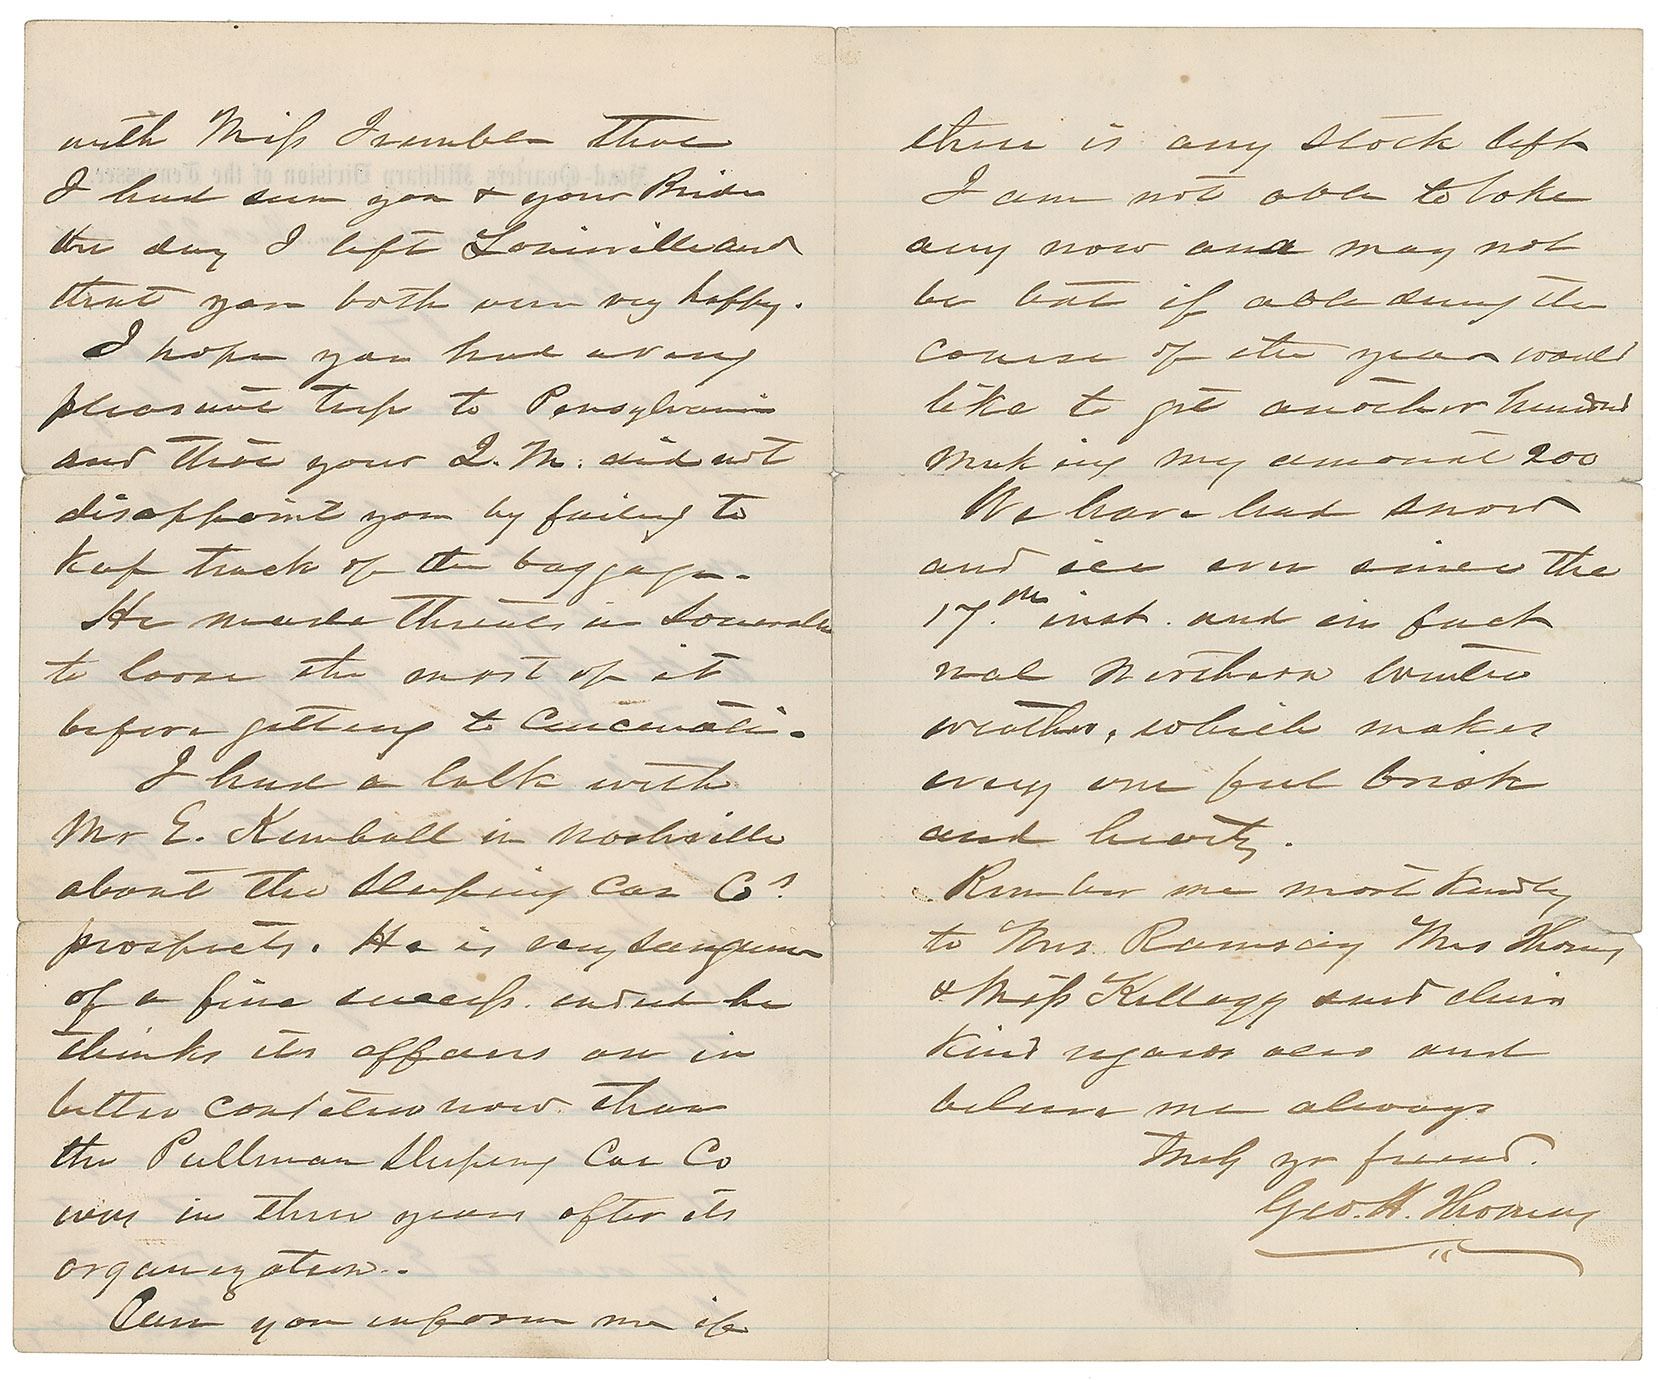 with Miss Trumbler that
I had seen you & your Bride
the day I left Louisville and
that you both were very happy.
I hope you had a very
pleasant trip to Pensylvania
and that your Q. M. did not
disappoint you by failing to
keep track of the baggage.
He made threats in Louisville
to loose the most of it
before getting to Cincinnati.
I had a talk with
Mr E. Kimball in Nashville
about the Sleeping Car Co's
prospects. He is very sanguine
of a fine success. indeed he
thinks its affairs are in
better condition now than
the Pullman Sleeping Car Co
was in three years after its
organization.
Can you inform me if
there is any stock left
I am not able to take
any now and may not
be but if able during the
course of the year would
like to get another hundred
making my amount 200
We have had snow
and ice ever since the
17.th inst. and in fact
real Northern winter
weather, which makes
every one feel brisk
and hearty.
Remember me most kindly
to Mrs. Ramsay Mrs Thomas
& Miss Kellogg send their
kind regards also and
believe me always
Truly yr friend.
Geo. H. Thomas
Head-Quarters Military Division of the Tennessee,